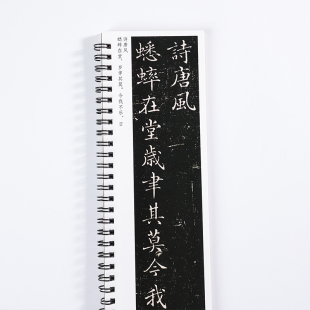 詩唐風
蟋蟀在堂歲聿其莫今我
诗唐风
蟋蟀在堂，岁聿其莫。今我不乐，日